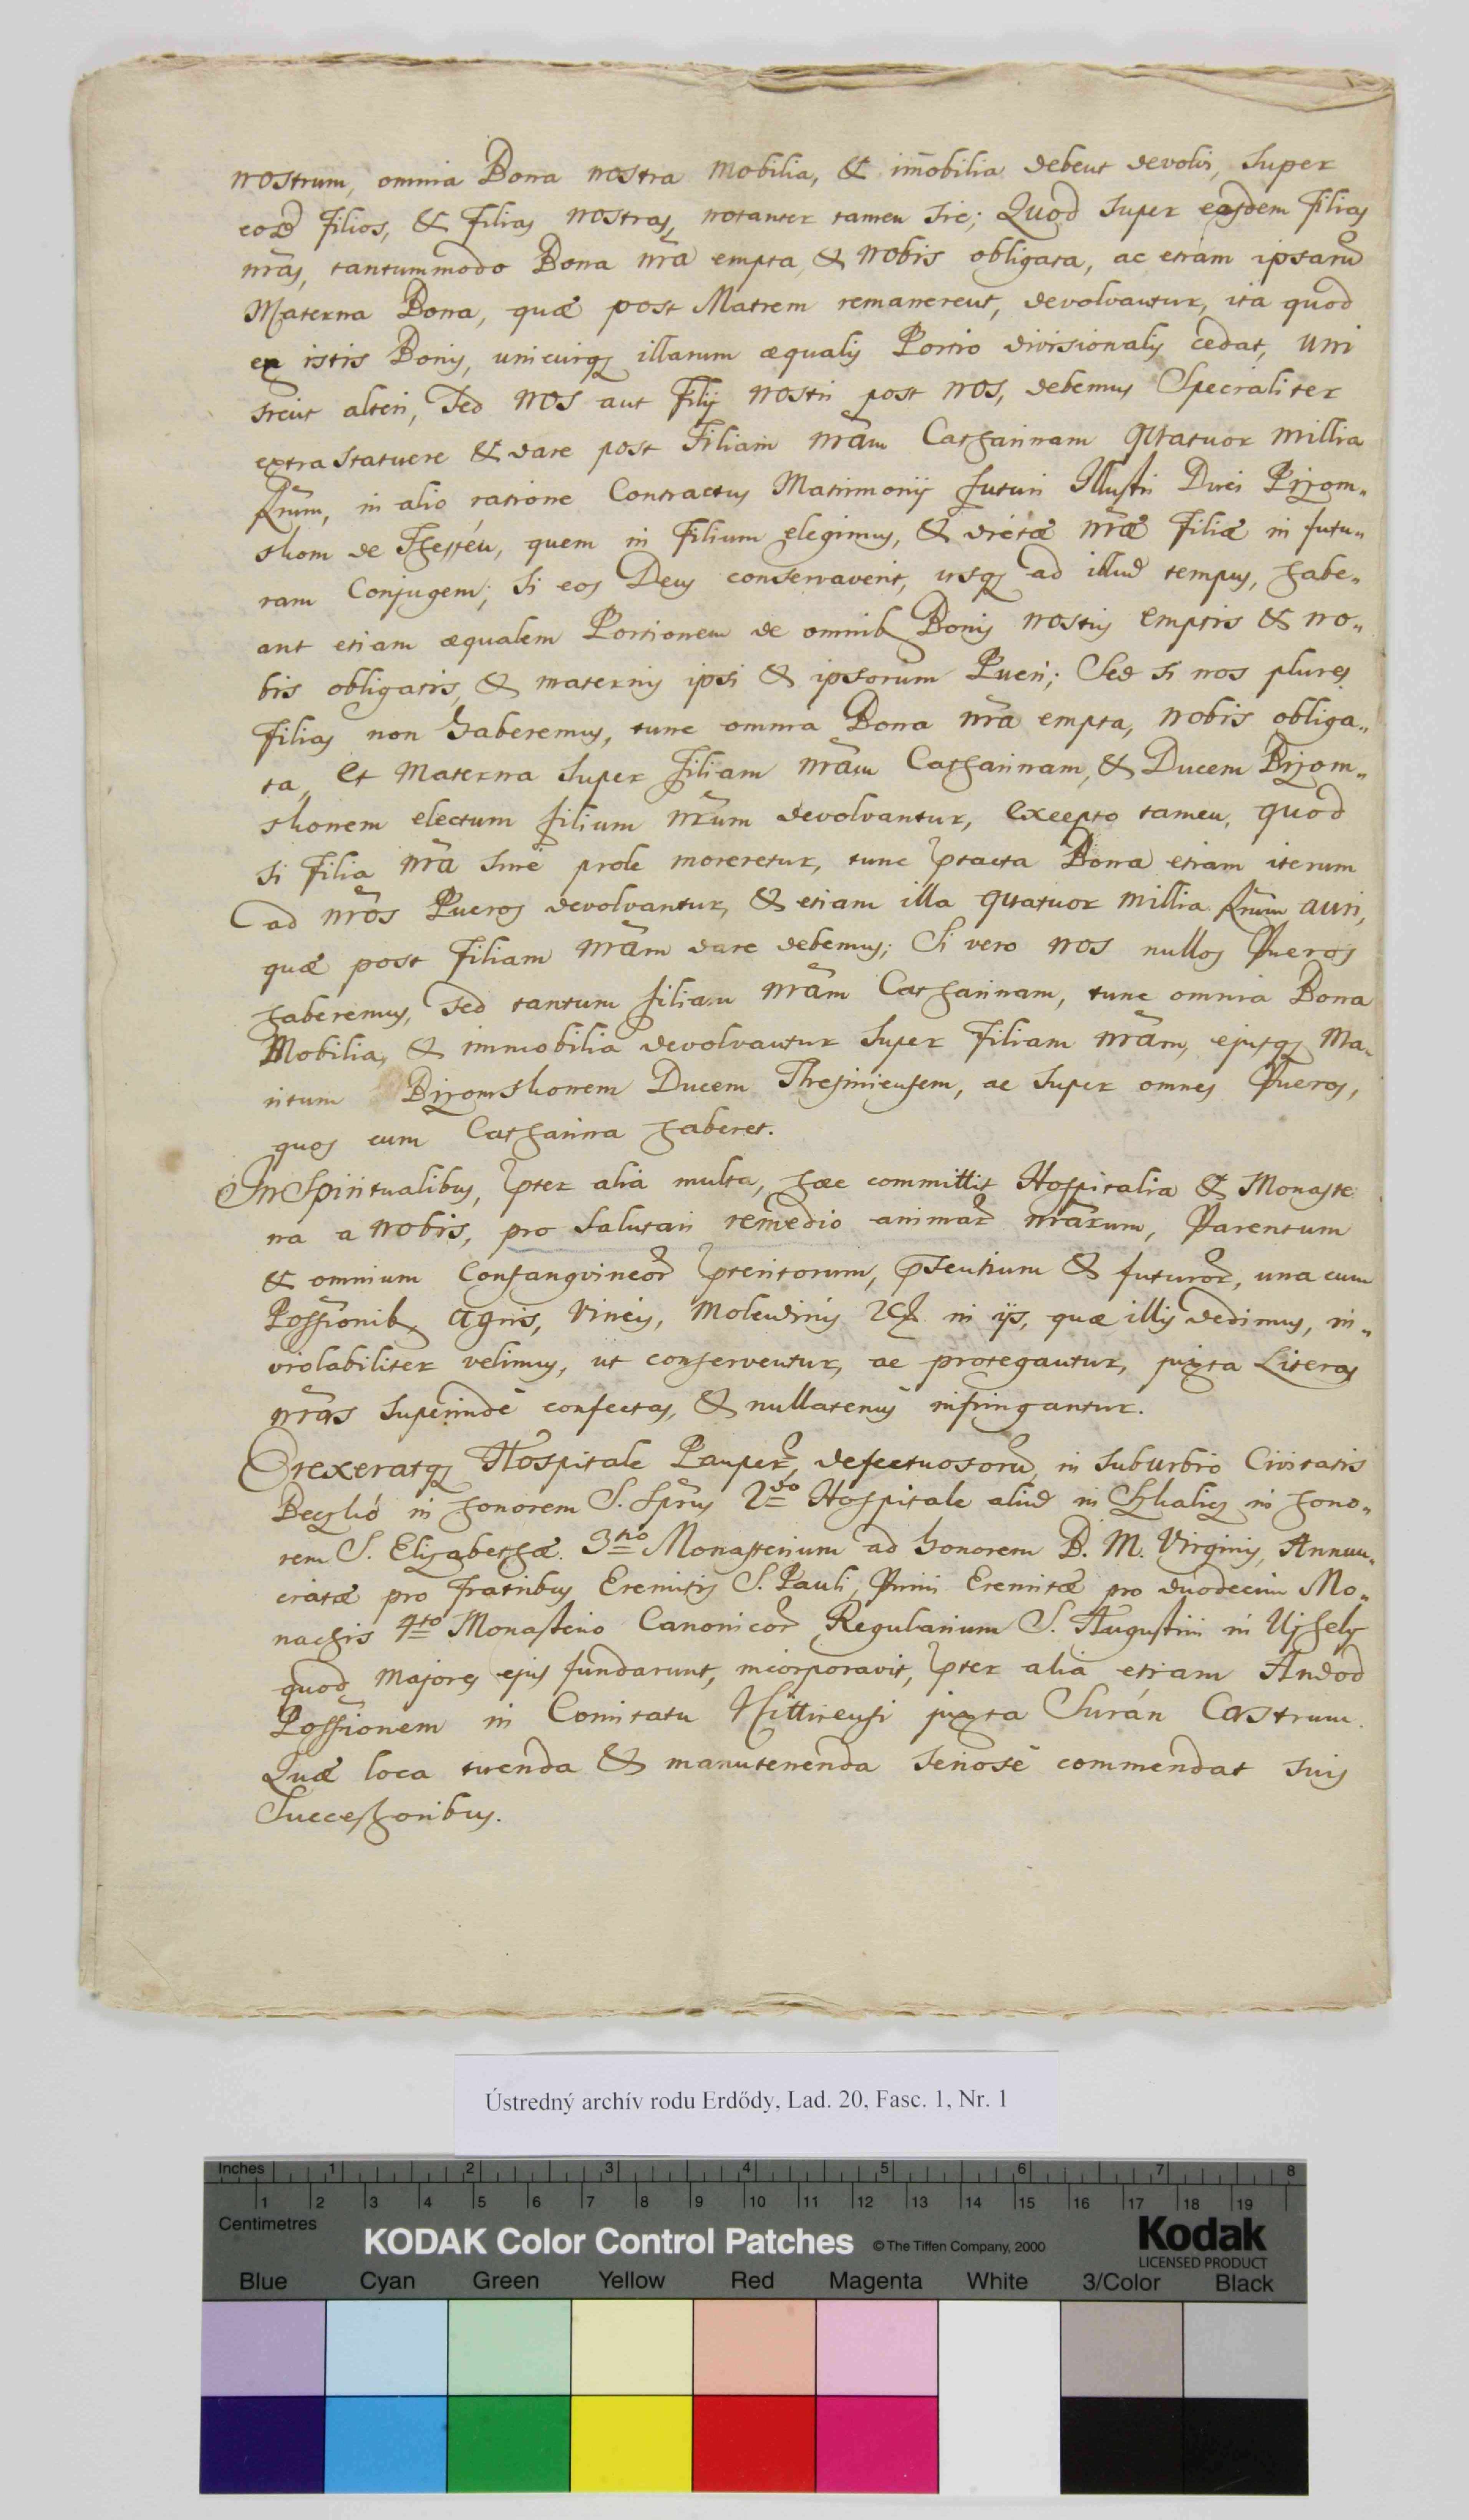 nostrum, omnia Bona nostra mobilia, & im̄obilia debent devolvi, super
eosd filios, & Filias nostras, notanter tamen sic; Quod super easdem Filias
nr̃as, tantummodo Bona nr̃a empta, & nobis obligata, ac etiam ipsarũ
Materna Bona, quæ post Matrem remanerent, devolvantur, ita quod
ex istis Bonis, unicuiqꝫ illarum æqualis Portio divisionalis cedat, uni
sicut alteri, sed nos aut Filij nostri post nos, debemus Specialiter
extra statuere & dare post Filiam nr̃am Catharinam quatuor millia
flrnũm, in alio ratione Contractus Matrimonij futuri Illustri Duci Prizom„
skom de Thessén, quem in Filium elegimus, & dictæ nr̃æ Filiæ in futu„
ram Conjugem; si eos Deus conservaverit, usqꝫ ad illud tempus, habe„
ant etiam æqualem Portionem de omnib Bonis nostris emptis & no„
bis obligatis, & maternis ipsi & ipsorum Pueri; Sed si nos plures
Filias non haberemus, tunc omnia Bona nr̃a empta, nobis obliga„
ta, et Materna super Filiam nr̃am Catharinam, & Ducem Prizom„
skonem electum filium nr̃um devolvantur, excepto tamen, quod
si Filia nr̃a sine prole moreretur, tunc ptacta Bona etiam iterum
ad nr̃os Pueros devolvantur, & etiam illa quatuor millia flrnũm auri,
quæ post Filiam nr̃am dare debemus; Si vero nos nullos Pueros
haberemus, sed tantum filiam nr̃am Catharinam, tunc omnia Bona
Mobilia, & immobilia devolvantur super Filiam nr̃am, ejusqꝫ Ma„
ritum Prizomskonem Ducem Thesiniensem, ac super omnes Pueros,
quos cum Catharina haberet.
In Spiritualibus, pter alia multa, hæc committit Hospitalia & Monaste
ria a nobis, pro salutari remedio animar̃ nr̃arum, Parentum
& omnium Consangvineor̃ pteritorum, p̃sentium & futuror̃, una cum
Possionib, agris, vineis, molendinis &c in ijs, quæ illis dedimus, in„
violabiliter velimus, ut conserventur, ac protegantur, juxta Literas
nr̃as superinde confectas, & nullatenus infringantur.
Erexeratqꝫ Hospitale Pauper̃, defectuosorũ, in suburbio Civitatis
Beczkó in honorem S. Sprus 2do Hospitale aliud in Szkalicz in hono„
rem S. Elizabethæ. 3tio Monasterium ad honorem B. M. Virginis, Annun„
ciatæ pro Fratribus Eremitis S. Pauli, Primi Eremitæ pro duodecim Mo„
nachis 4to Monasterio Canonicor̃ Regularium S. Augustini in Ujhely
quod majores ejus fundarunt, incorporavit, pter alia etiam Andod
Possionem in Comitatu Nittriensi juxta Surán Castrum.
Quæ loca tuenda & manutenenda seriose commendat suis
Successoribus.
Ústredný archív rodu Erdődy, Lad. 20, Fasc. 1, Nr. 1
Inches 1 2 3 4 5 6 7 8
1 2 3 4 5 6 7 8 9 10 11 12 13 14 15 16 17 18 19
Centimetres
KODAK Color Control Patches © The Tiffen Company, 2000 Kodak
LICENSED PRODUCT
Blue Cyan Green Yellow Red Magenta White 3/Color Black